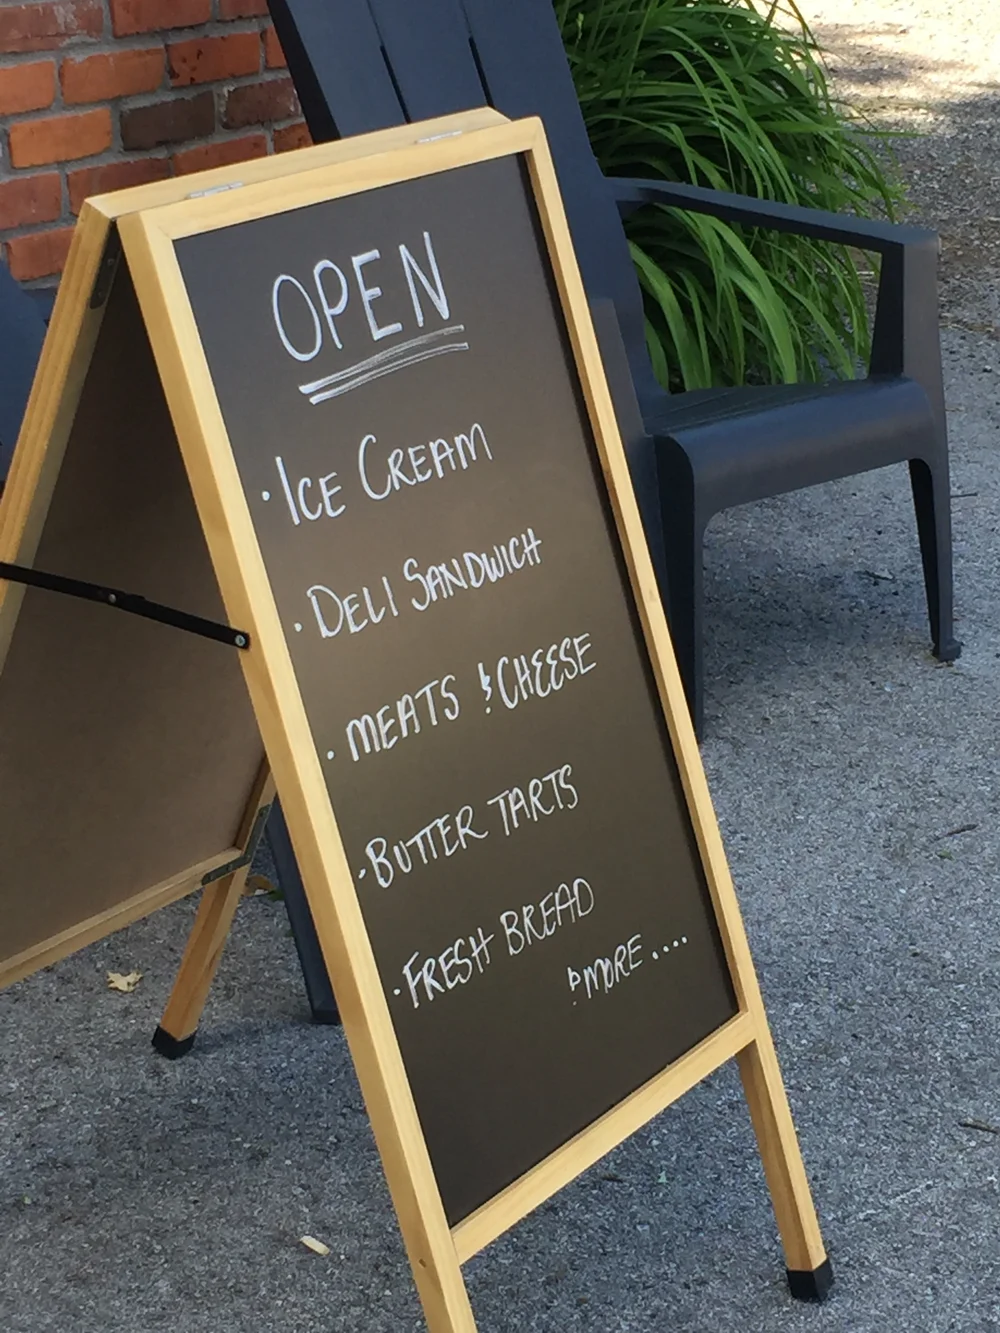 OPEN
· ICE CREAM
· DELI SANDWICH
· MEATS & CHEESE
· BUTTER TARTS
· FRESH BREAD
& MORE ....